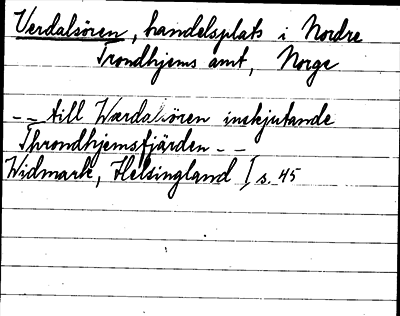 Verdalsören, handelsplats i Nordre
Trondhjems amt, Norge
-- till Wærdalsören inskjutande
Throndhjemsfjärden --
Widmark, Helsingland I s. 45